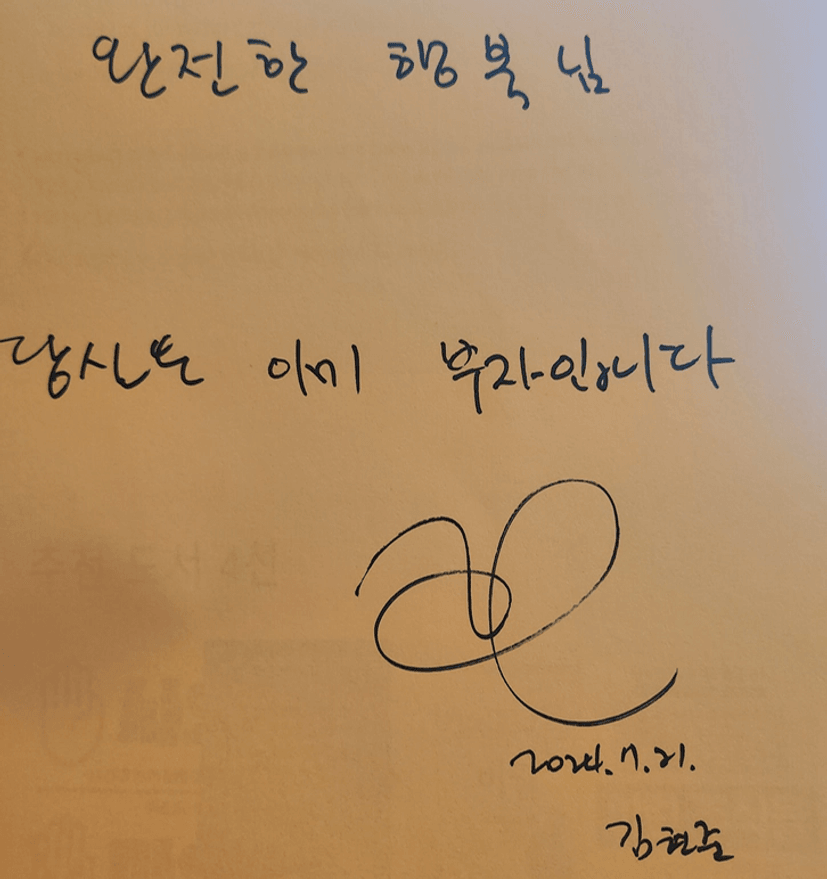 완전한 행복님
당신은 이미 부자입니다
2024.7.21.
김현준